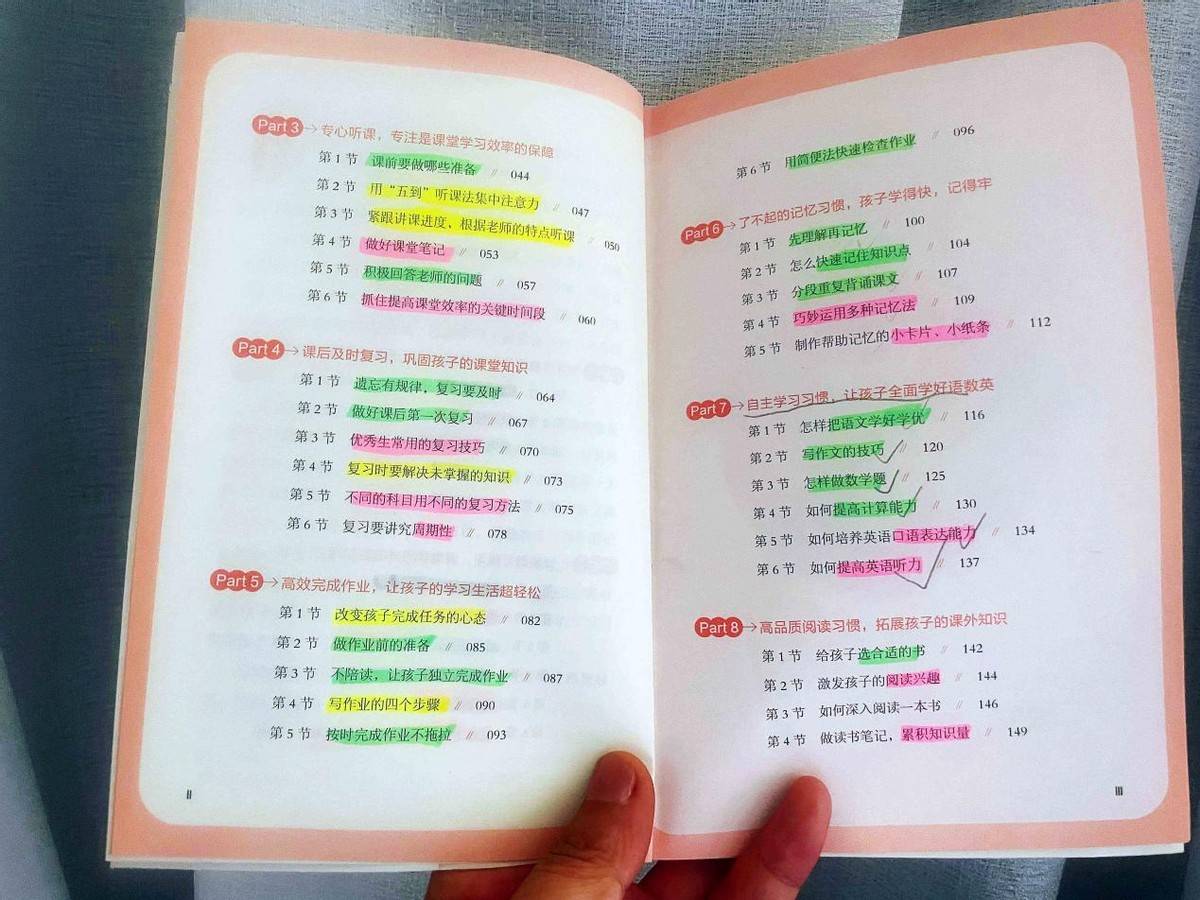 Part 3 → 专心听课，专注是课堂学习效率的保障
第1节 课前要做哪些准备 // 044
第2节 用“五到”听课法集中注意力 // 047
第3节 紧跟讲课进度，根据老师的特点听课 // 050
第4节 做好课堂笔记 // 053
第5节 积极回答老师的问题 // 057
第6节 抓住提高课堂效率的关键时间段 // 060
Part 4 → 课后及时复习，巩固孩子的课堂知识
第1节 遗忘有规律，复习要及时 // 064
第2节 做好课后第一次复习 // 067
第3节 优秀生常用的复习技巧 // 070
第4节 复习时要解决未掌握的知识 // 073
第5节 不同的科目用不同的复习方法 // 075
第6节 复习要讲究周期性 // 078
Part 5 → 高效完成作业，让孩子的学习生活超轻松
第1节 改变孩子完成任务的心态 // 082
第2节 做作业前的准备 // 085
第3节 不陪读，让孩子独立完成作业 // 087
第4节 写作业的四个步骤 // 090
第5节 按时完成作业不拖拉 // 093
II
第6节 用简便法快速检查作业 // 096
Part 6 → 了不起的记忆习惯，孩子学得快，记得牢
第1节 先理解再记忆 // 100
第2节 怎么快速记住知识点 // 104
第3节 分段重复背诵课文 // 107
第4节 巧妙运用多种记忆法 // 109
第5节 制作帮助记忆的小卡片、小纸条 // 112
Part 7 → 自主学习习惯，让孩子全面学好语数英
第1节 怎样把语文学好学优 // 116
第2节 写作文的技巧 // 120
第3节 怎样做数学题 // 125
第4节 如何提高计算能力 // 130
第5节 如何培养英语口语表达能力 // 134
第6节 如何提高英语听力 // 137
Part 8 → 高品质阅读习惯，拓展孩子的课外知识
第1节 给孩子选合适的书 // 142
第2节 激发孩子的阅读兴趣 // 144
第3节 如何深入阅读一本书 // 146
第4节 做读书笔记，累积知识量 // 149
III